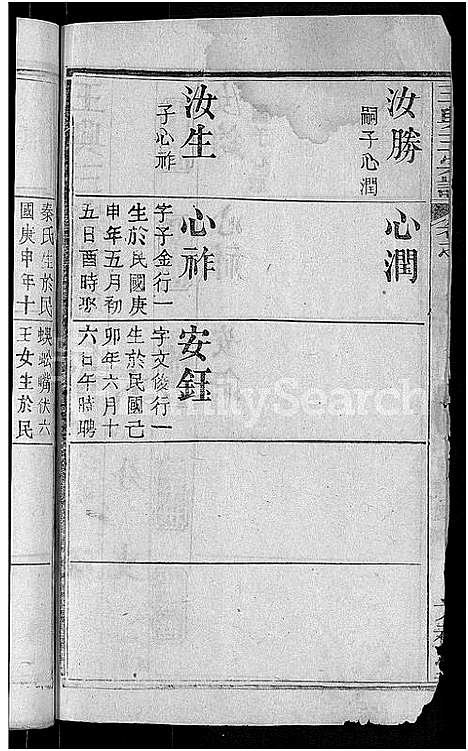 汝勝
嗣子心潤
汝生
子心祚
心潤
心祚
字子金行一
生於民國庚
申年五月初
五日酉時娶
安鈺
字文俊行一
生於民國己
卯年六月十
六日午時聘
秦氏生於民
國庚申年十
蜈蚣嘴伏六
王女生於民
FamilySearch